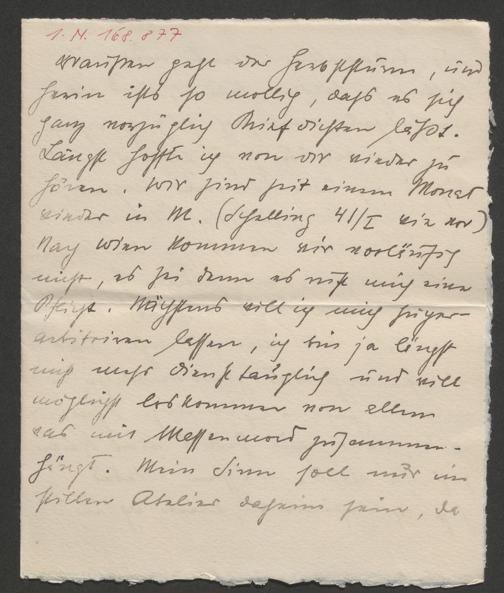 I.N. 168.877
draußen geht der Herbststurm, und
herin ists so mollig, daß es sich
ganz vorzüglich Brief dichten läßt.
Längst hoffte ich von dir wieder zu
hören. Wir sind seit einem Monat
wieder in M. (Schelling 41/I wie vor)
Nach Wien kommen wir vorläufig
nicht, es sei denn es ruft mich eine
Pflicht. Nächstens will ich mich super-
arbitrieren lassen, ich bin ja längst
nicht mehr diensttauglich und will
möglichst loskommen von allem
was mit Massenmord zusammen-
hängt. Mein Sinn soll nur im
stillen Atelier daheim sein, da